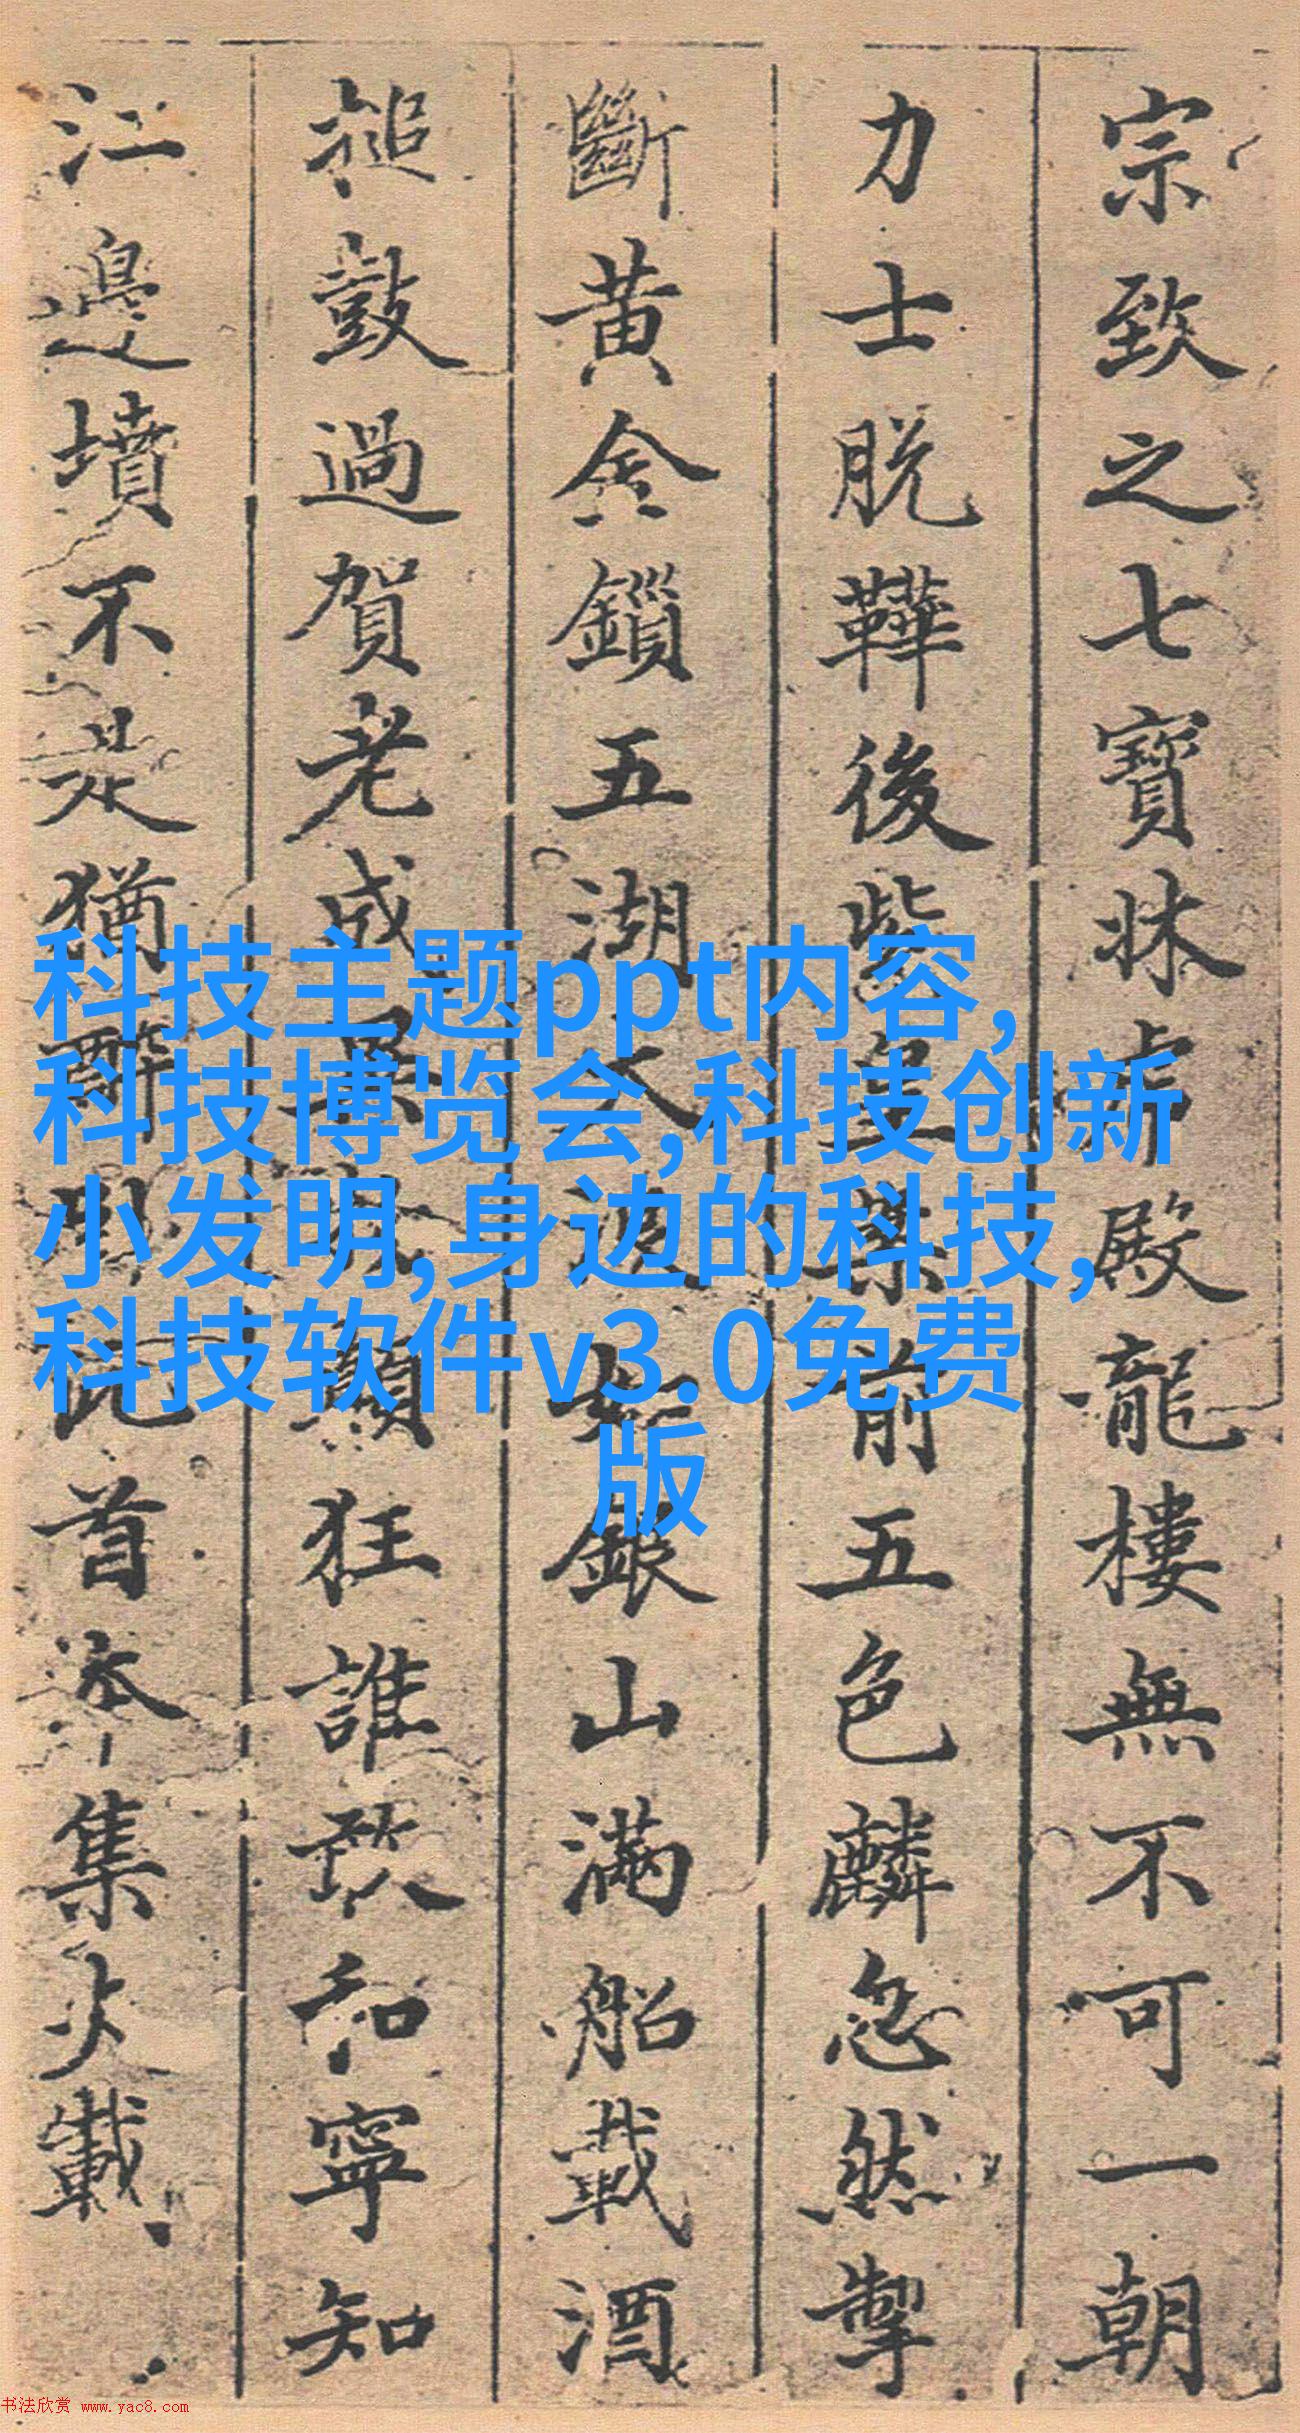 宗致之七寶牀虎殿龍樓無不可一朝
力士脱鞾後紫皇案前五色麟忽然掣
斷黄金鎖五湖大浪如銀山滿船載酒
撾鼓過賀老成異物顛狂誰敢和寧知
江邊墳不是猶醉卧此首本集火載
科技主题ppt内容,
科技博览会,科技创新
小发明,身边的科技,
科技软件v3.0免费
版
书法欣赏 www.yac8.com